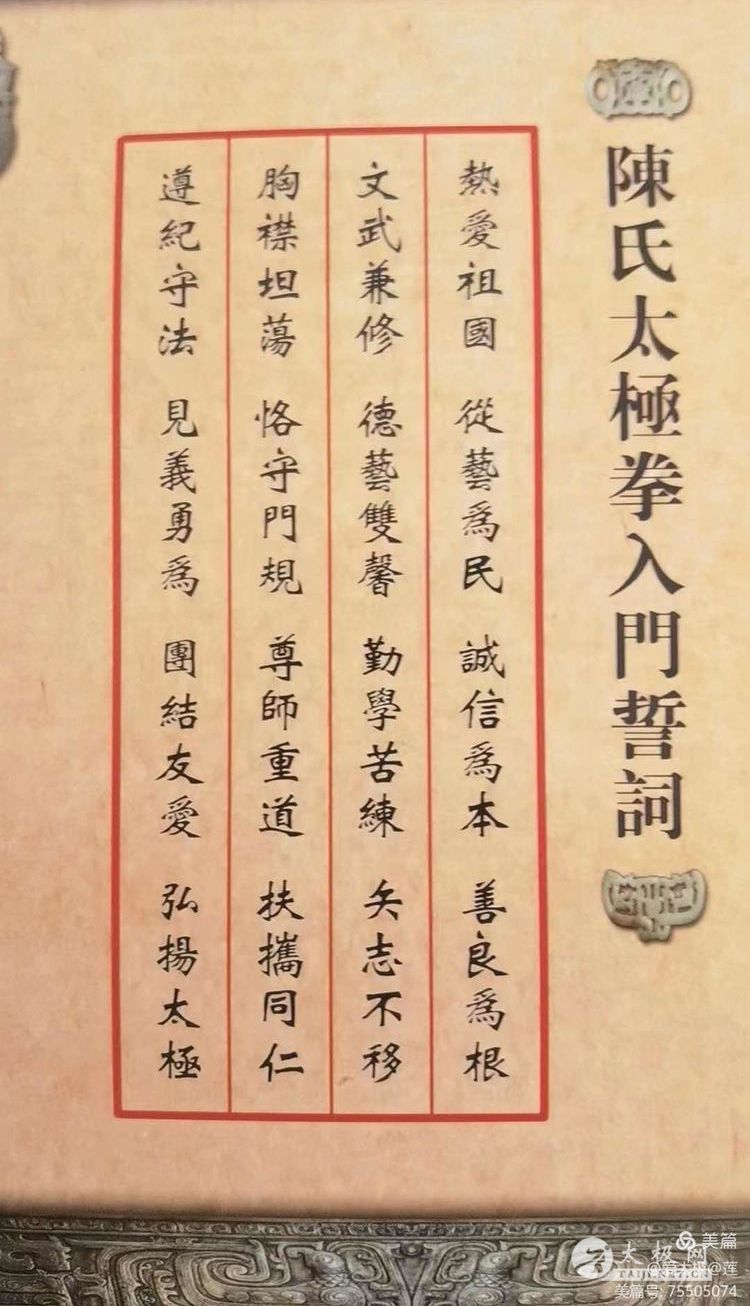 陳氏太極拳入門誓詞
熱愛祖國 從藝爲民 誠信爲本 善良爲根
文武兼修 德藝雙馨 勤學苦練 矢志不移
胸襟坦蕩 恪守門規 尊師重道 扶攜同仁
遵紀守法 見義勇爲 團結友愛 弘揚太極
美篇
太极网
@爱太极@莲
TAIJIREN.CN
美篇号: 75505074